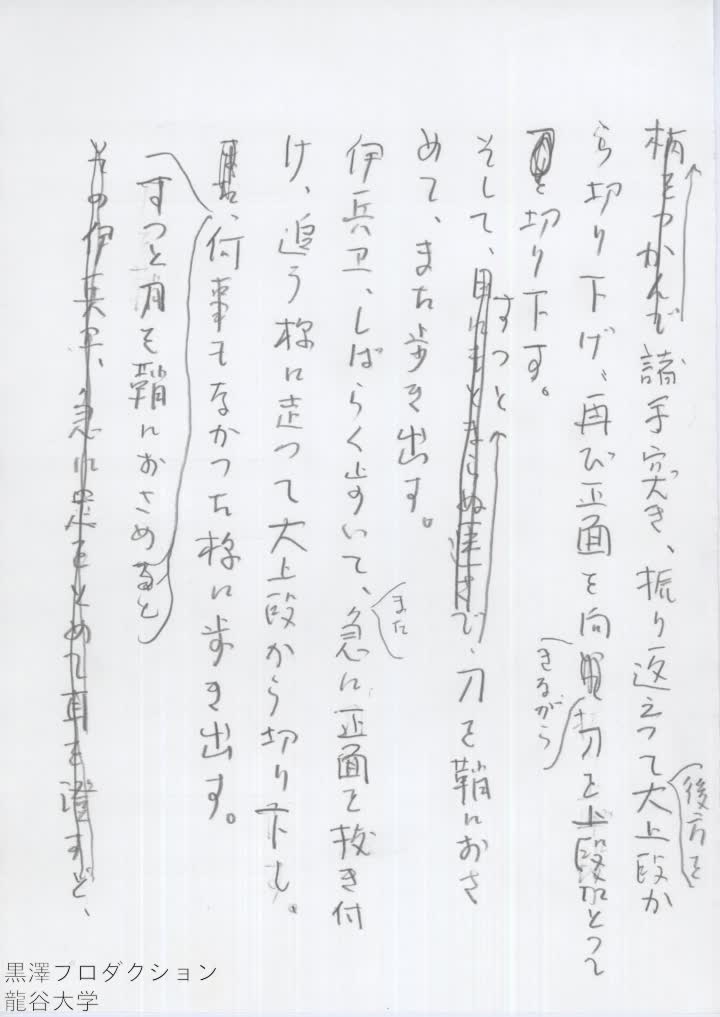 柄をつかんで諸手突き、振り返って大上段か
後方を
ら切り下げ、再び正面を向
きながら
刀を上段にとって
を切り下す。
そして、目にもとまらぬ速さで、刀を鞘におさ
すっと
めて、また歩き出す。
伊兵卫、しばらく歩いて、急に正面を抜き付
また
け、追う様に走って大上段から切り下し。
、何事もなかった様に歩き出す。
すっと刀を鞘におさめると
その伊兵卫、急に足をとめて耳を澄すと、
黒澤プロダクション
龍谷大学